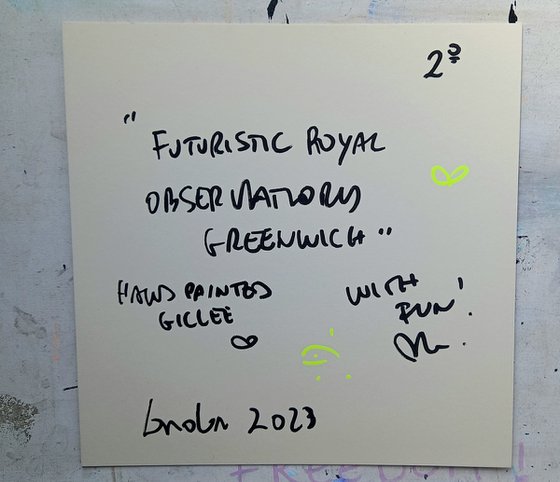 2º
"FUTURISTIC ROYAL
OBSERVATIORY
GREENWICH"
HAND PAINTED
GICLEE
WITH
FUN!
London 2023
FREEDOM!